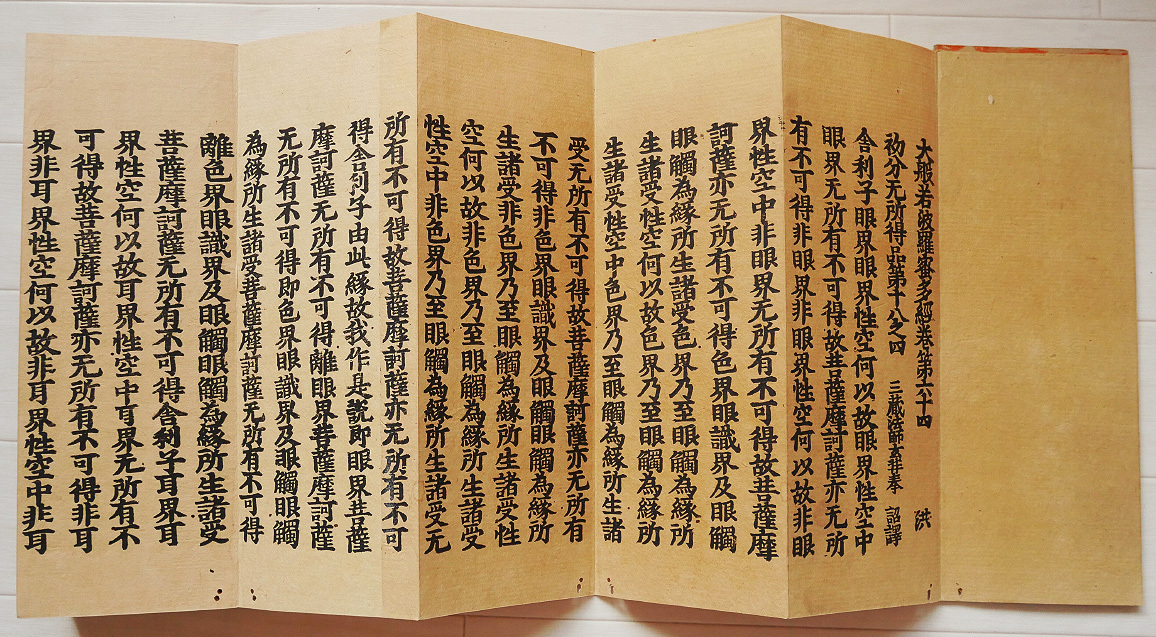 大般若波羅蜜多經卷第六十四 洪
初分无所得品第十八之四 三藏法師玄奘奉 詔譯
舎利子眼界眼界性空何以故眼界性空中
眼界无所有不可得故菩薩摩訶薩亦无所
有不可得非眼界非眼界性空何以故非眼
界性空中非眼界无所有不可得故菩薩摩
訶薩亦无所有不可得色界眼識界及眼觸
眼觸為緣所生諸受色界乃至眼觸為緣所
生諸受性空何以故色界乃至眼觸為緣所
生諸受性空中色界乃至眼觸為緣所生諸
受无所有不可得故菩薩摩訶薩亦无所有
不可得非色界眼識界及眼觸眼觸為緣所
生諸受非色界乃至眼觸為緣所生諸受性
空何以故非色界乃至眼觸為緣所生諸受
性空中非色界乃至眼觸為緣所生諸受无
所有不可得故菩薩摩訶薩亦无所有不可
得舎利子由此緣故我作是說即眼界菩薩
摩訶薩无所有不可得離眼界菩薩摩訶薩
无所有不可得即色界眼識界及眼觸眼觸
為緣所生諸受菩薩摩訶薩无所有不可得
離色界眼識界及眼觸眼觸為緣所生諸受
菩薩摩訶薩无所有不可得舎利子耳界耳
界性空何以故耳界性空中耳界无所有不
可得故菩薩摩訶薩亦无所有不可得非耳
界非耳界性空何以故非耳界性空中非耳